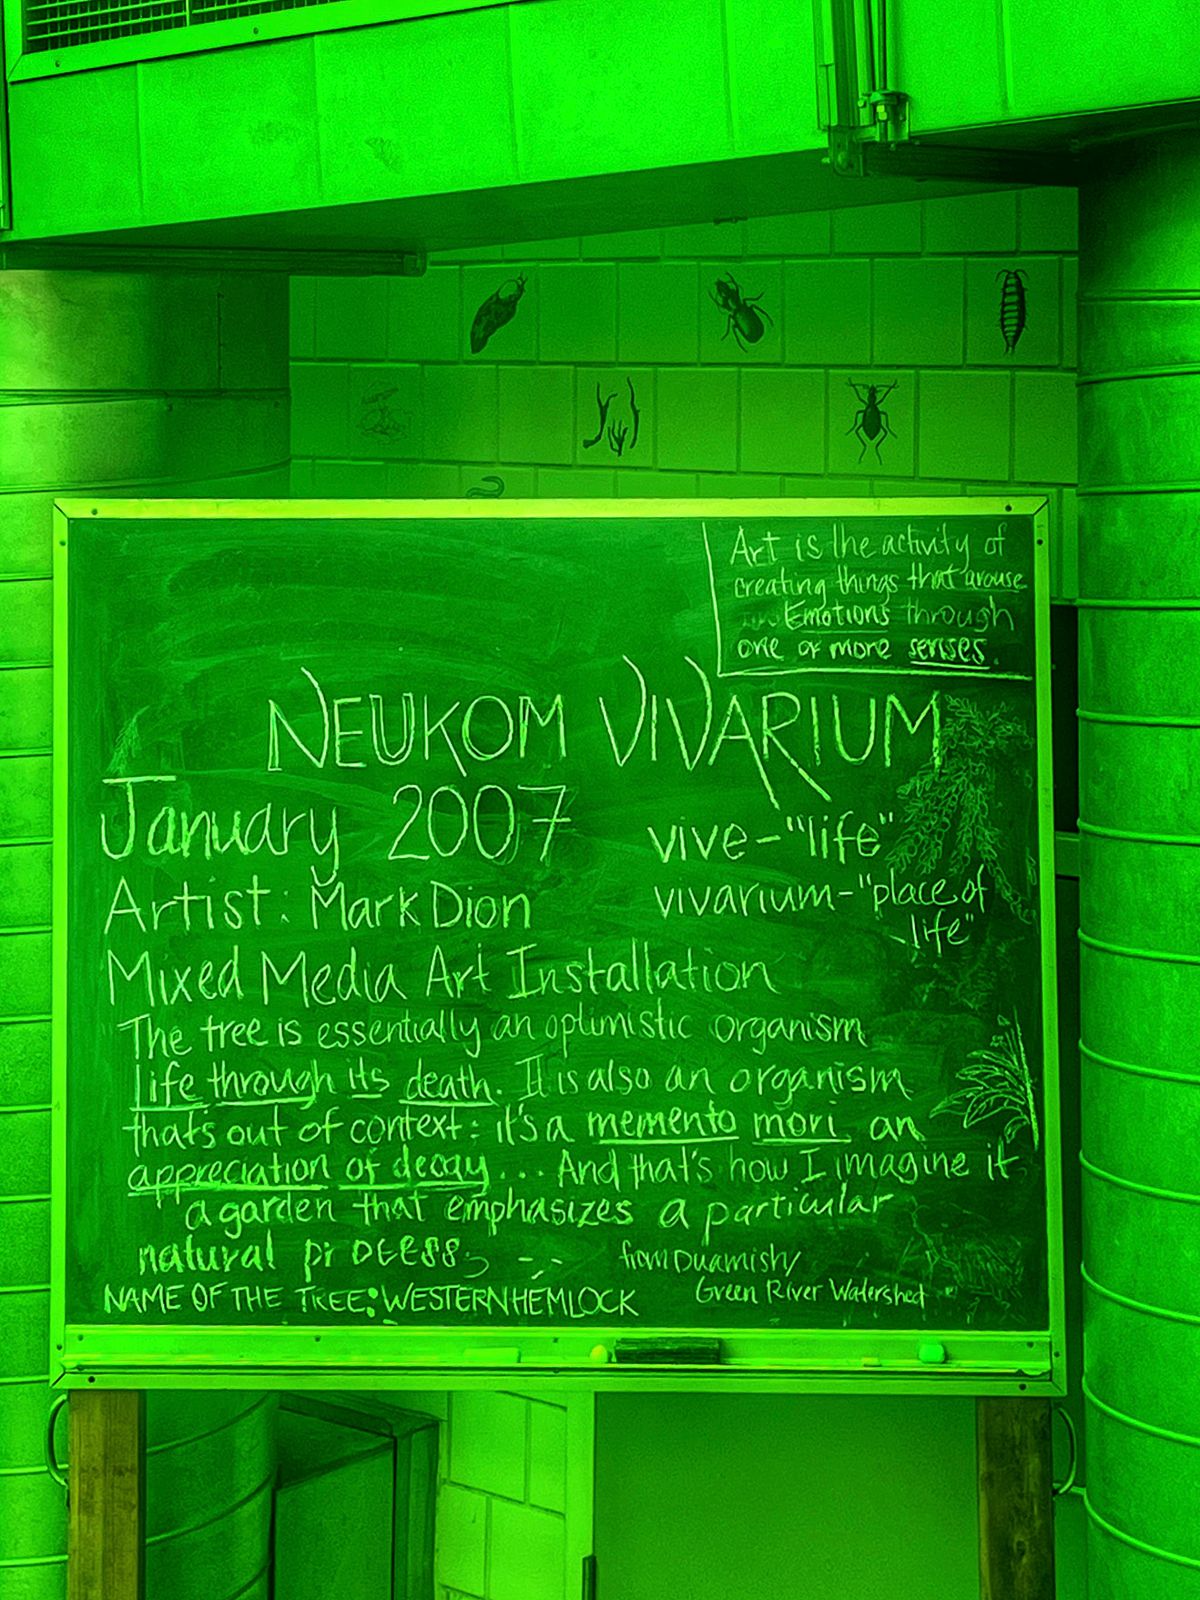 Art is the activity of
creating things that arouse
Emotions through
one or more senses.
NEUKOM VIVARIUM
January 2007
vive-"life"
Artist: Mark Dion
vivarium-"place of
life"
Mixed Media Art Installation
The tree is essentially an optimistic organism
life through its death. It is also an organism
that's out of context: it's a memento mori, an
appreciation of decay... And that's how I imagine it
a garden that emphasizes a particular
natural process
from Duamish/
Green River Watershed
NAME OF THE TREE: WESTERN HEMLOCK